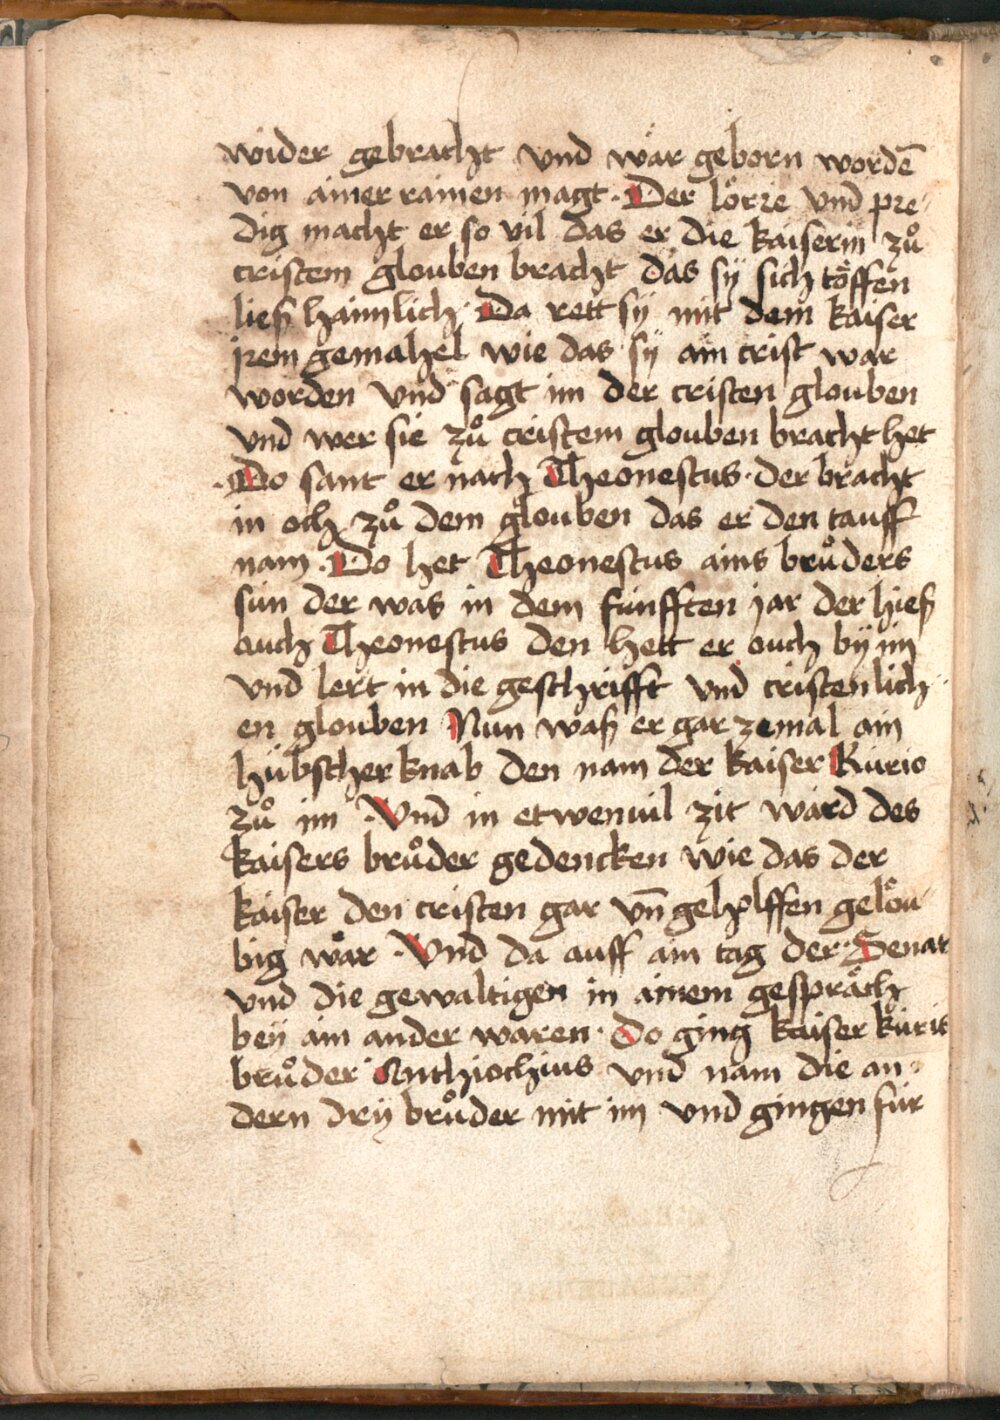 wider gebracht vnd wär geborn wordē
von ainer rainen magt · Der lörre vnd pre-
dig macht er so vil das er die kaiserin zů
cristem glouben bracht das sÿ sich töffen
ließ haimlich · Da rett sÿ mit dem kaiser
jrem gemahel wie das sÿ ain crist war
worden vnd sagt im der cristen glouben
vnd wer sie zů cristem glouben bracht het
· Do sant er nach Theonestus · der bracht
in och zů dem glouben das er den tauff
nam · Do het Theonestus ains brůders
sun der was in dem funfften jar der hieß
auch Theonestus den hett er ouch bÿ im
vnd lert in die geschrifft vnd cristenlich-
en glouben Nun waß er gar zemal ain
hübscher knab den nam der kaiser Kurio
zů im · Vnd in etwenuil zit ward des
kaisers brůder gedencken wie das der
kaiser den cristen gar vn̄ geholffen gelöu-
big wär · Vnd da auff ain tag der Senat
vnd die gewaltigen in ainem gespräch
beÿ ain ander waren · Do ging kaiser kuris
brůder Anthiochius vnd nam die an-
dern drÿ brůder mit im vnd gingen für